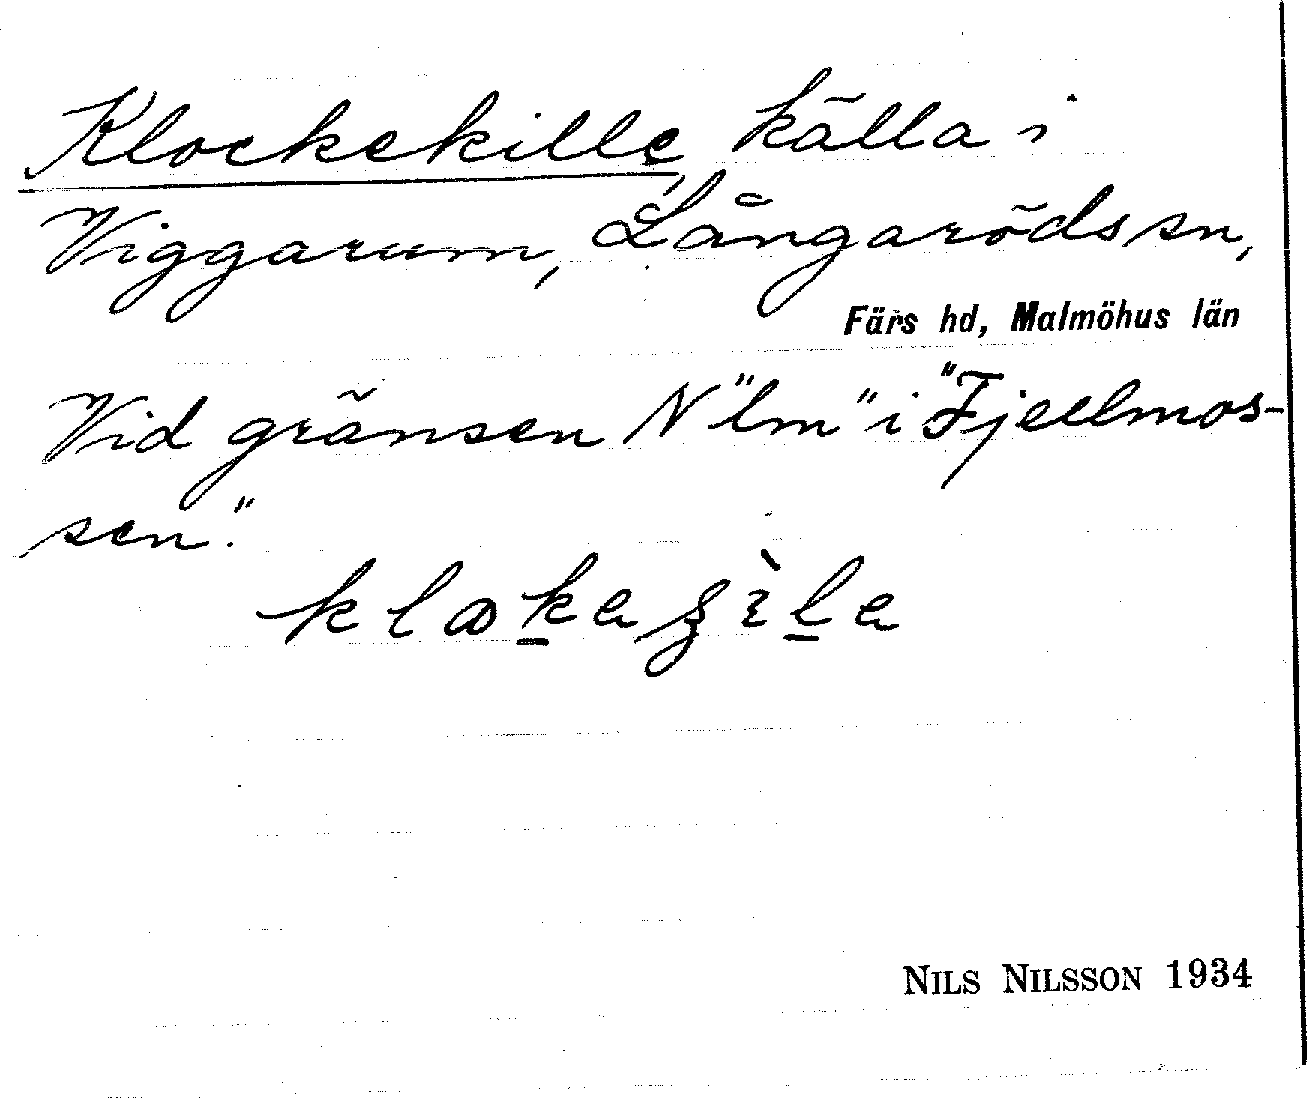 Klockekille, källa i
Viggarum, Långaröds sn,
Färs hd, Malmöhus län
Vid gränsen N "lm" i "Fjellmos-
sen".
NILS NILSSON 1934